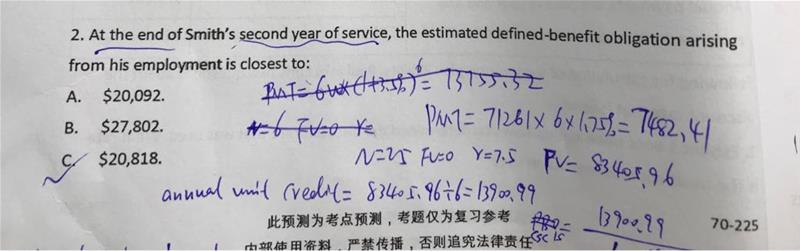 2. At the end of Smith's second year of service, the estimated defined-benefit obligation arising
from his employment is closest to:
A. $20,092.
B. $27,802.
C. $20,818.
PMT=71261×6×1.75%=7482,41
N=25 FV=0 Y=7.5 PV=83405,96
annual unit credit=83405.96÷6=13900.99
此预测为考点预测，考题仅为复习参考
13900.99
70-225
内部使用资料，严禁传播，否则追究法律责任